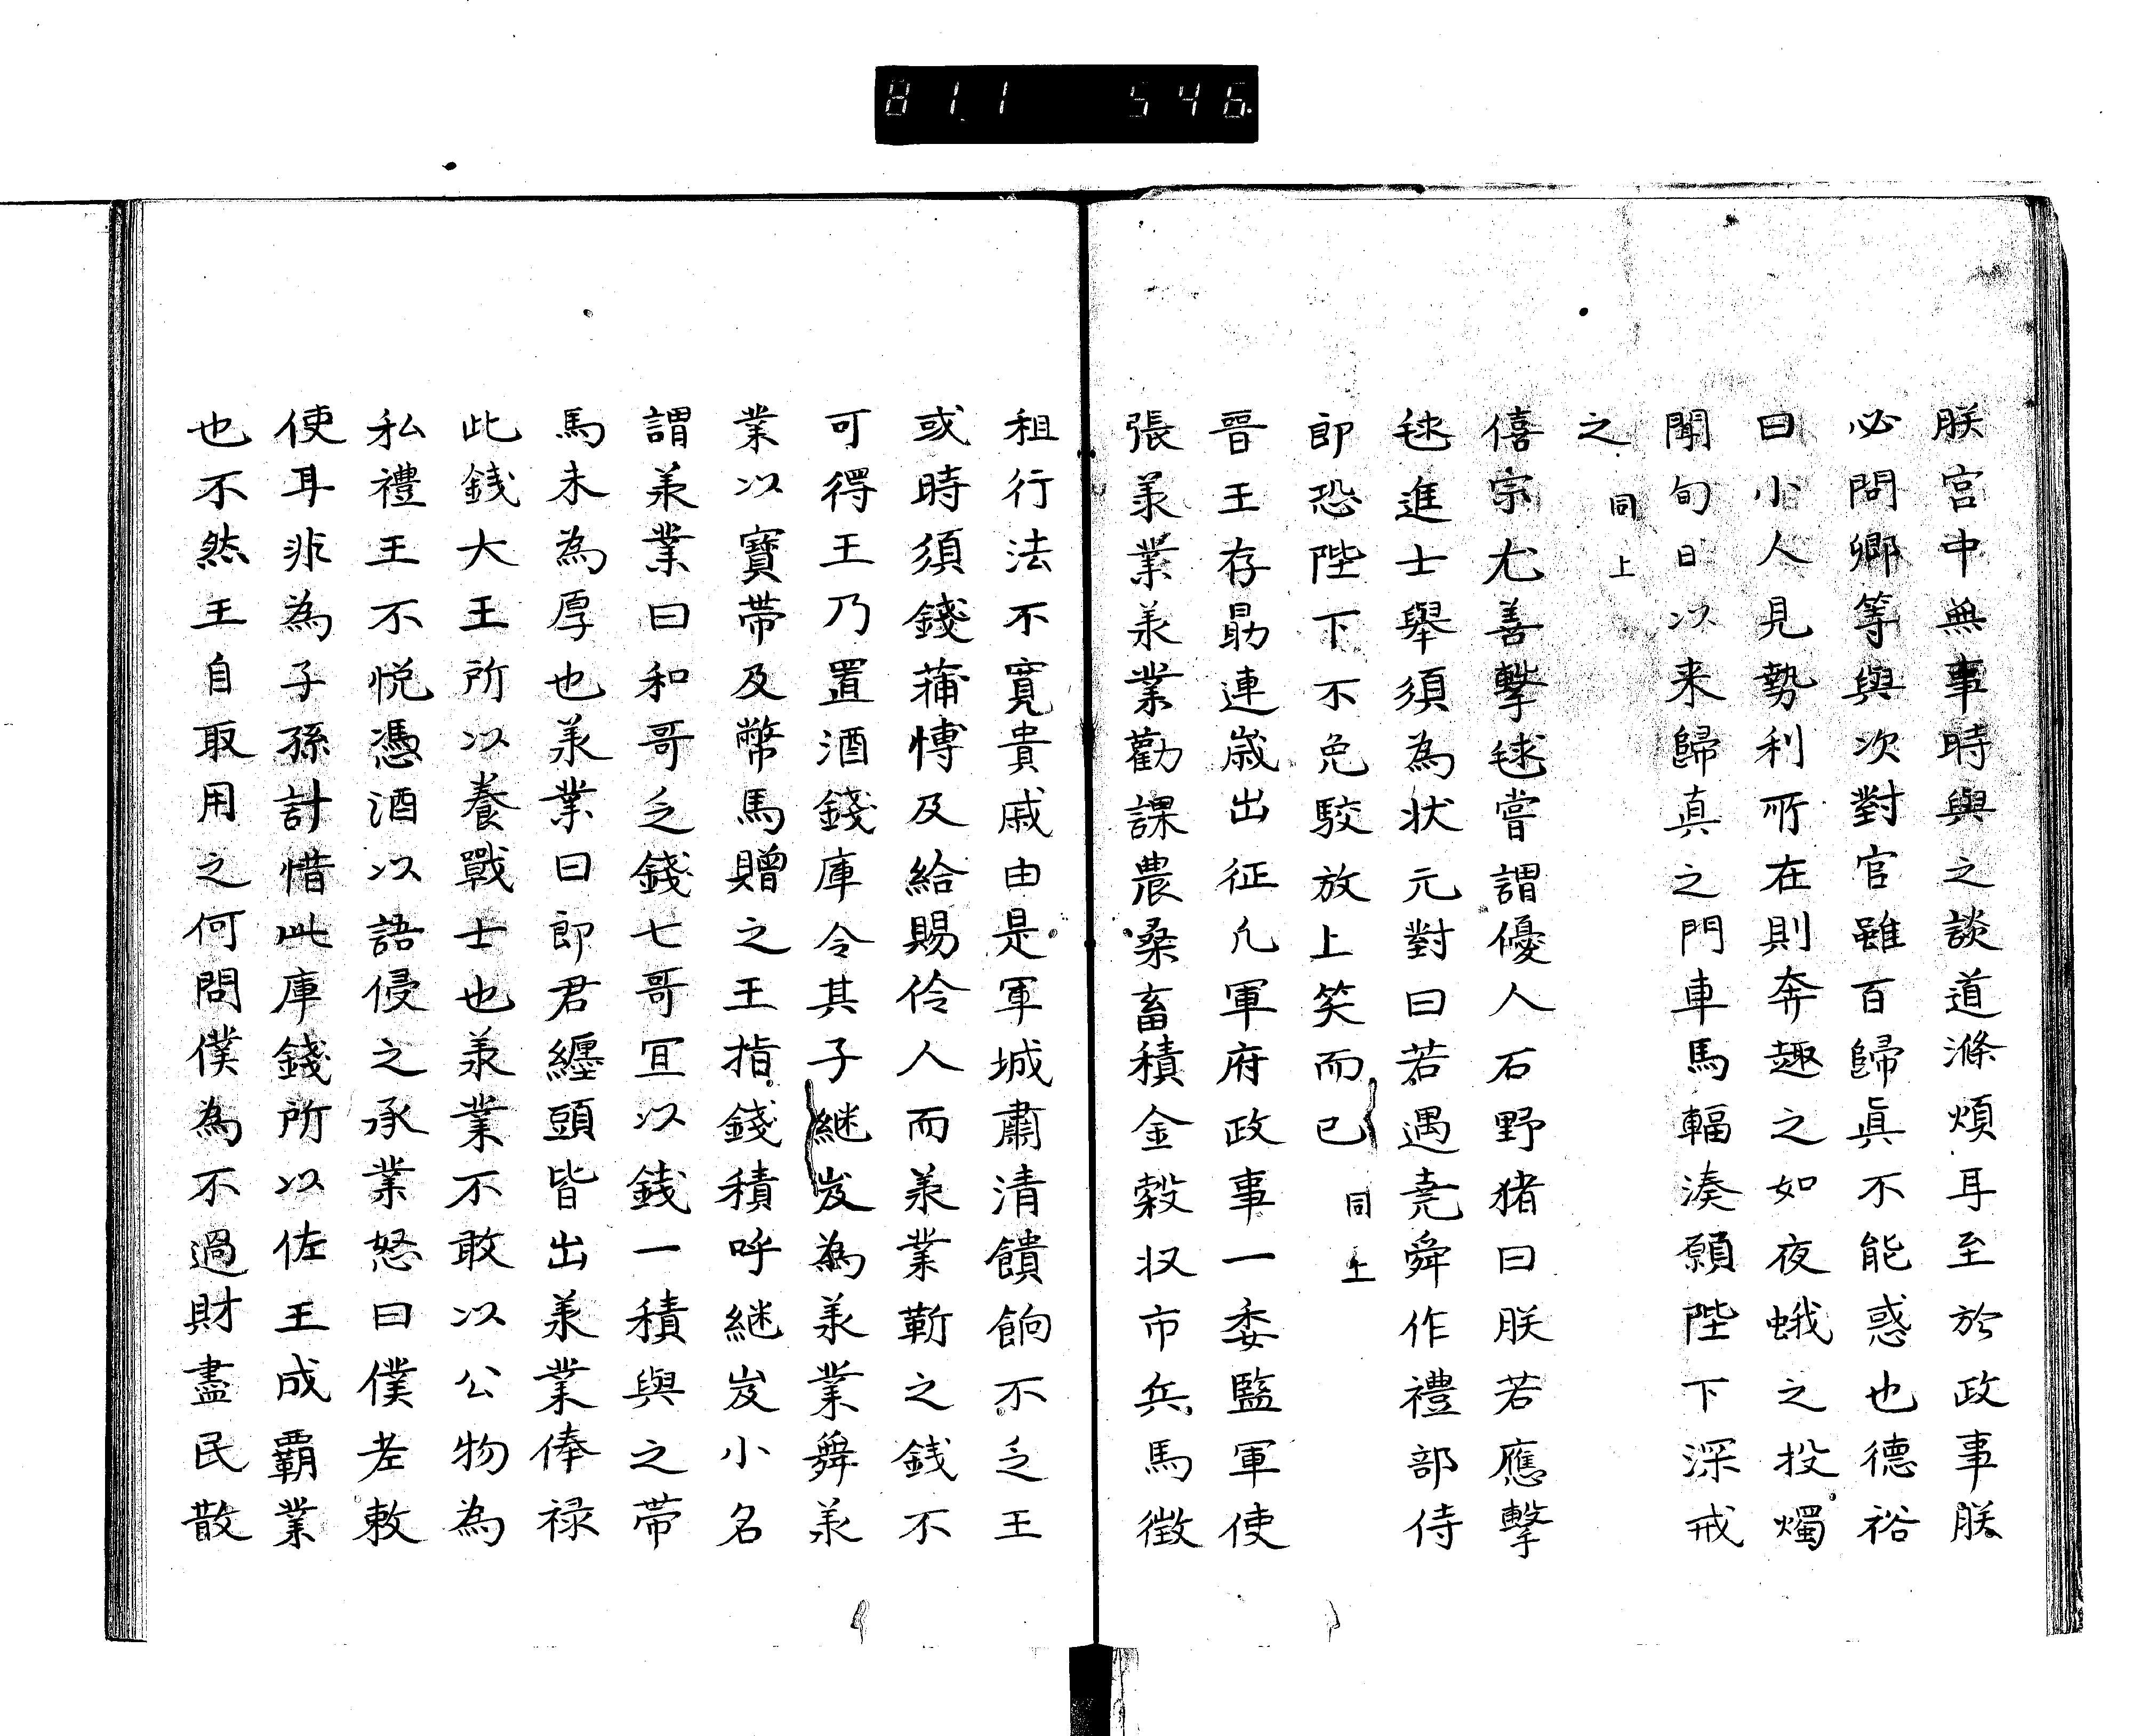 811 546
朕宮中無事時與之談道滌煩耳至於政事朕
必問卿等與次對官雖百歸眞不能惑也德裕
曰小人見勢利所在則奔趣之如夜蛾之投燭
聞旬日以来歸真之門車馬輻湊願陛下深戒
之 同上
僖宗尤善擊毬嘗謂優人石野猪曰朕若應擊
毬進士舉須為状元對曰若遇堯舜作禮部侍
郎恐陛下不免駮放上笑而已 同上
晉王存勗連歳出征凢軍府政事一委監軍使
張承業承業勸課農桑畜積金穀収市兵馬徴
租行法不寛貴戚由是軍城肅清饋餉不乏王
或時須錢蒱愽及給賜伶人而承業靳之錢不
可得王乃置酒錢庫令其子継岌為承業舞承
業以寶帯及幣馬贈之王指錢積呼継岌小名
謂承業曰和哥乏錢七哥冝以銭一積與之帯
馬未為厚也承業曰郎君纒頭皆出承業俸禄
此銭大王所以養戰士也承業不敢以公物為
私禮王不悦憑酒以語侵之承業怒曰僕老敕
使耳非為子孫計惜此庫錢所以佐王成霸業
也不然王自取用之何問僕為不過財盡民散